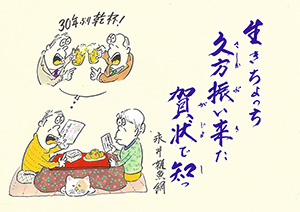 生きちょっち
久方振い来た
賀状で知っ
がじょ
30年ぶり乾杯!